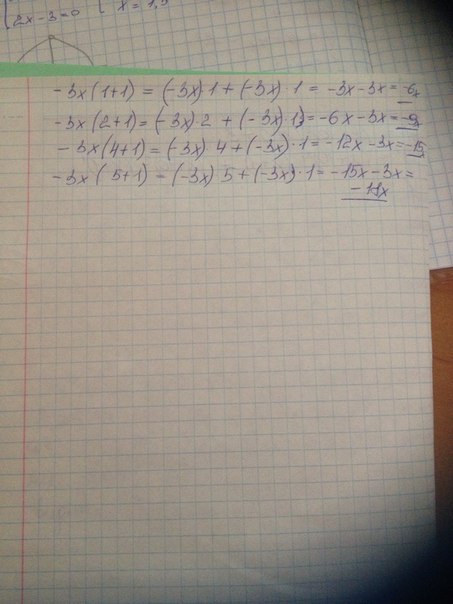 2x-3=0
x = 1,5
-3x(1+1) = (-3x)·1 + (-3x)·1 = -3x-3x= -6x
-3x(2+1)= (-3x)·2 + (-3x)·1)= -6x-3x= -9x
-3x(4+1) = (-3x) 4 + (-3x)·1 = -12x-3x= -15x
-3x( 5+1) = (-3x) 5 + (-3x)·1 = -15x-3x=
-18x